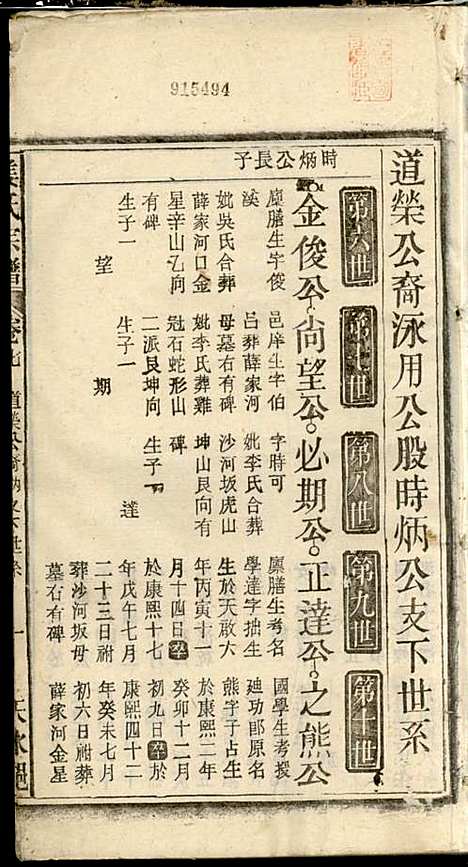 915494
道榮公裔泳用公股時炳公支下世系
第六世
第七世
第八世
第九世
第十世
時炳公長子
金俊公
尚望公
必期公
正達公
之熊公
廩膳生字俊
溪
妣吳氏合葬
薛家河口金
星辛山乙向
有碑
生子一
望
邑庠生字伯
呂葬薛家河
母墓右有碑
妣李氏葬雞
冠石蛇形山
二派艮坤向
生子一
期
字時可
妣李氏合葬
沙河坂虎山
坤山艮向有
碑
生子一
達
廩膳生考名
學達字拙生
生於天啟六
年丙寅十一
月十四日卒
於康熙十七
年戊午七月
二十三日祔
葬沙河坂母
墓右有碑
國學生考授
迪功郎原名
熊字子占生
於康熙二年
癸卯十二月
初九日卒於
康熙四十二
年癸未七月
初六日祔葬
薛家河金星
氏宗譜
卷七
道榮公裔
一